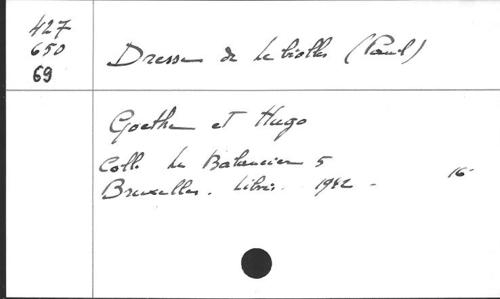 427
650
69
Dresse de Lebiolles (Paul)
Goethe et Hugo
Coll. Le Balancier 5
Bruxelles. Libris. 1942 -
16°